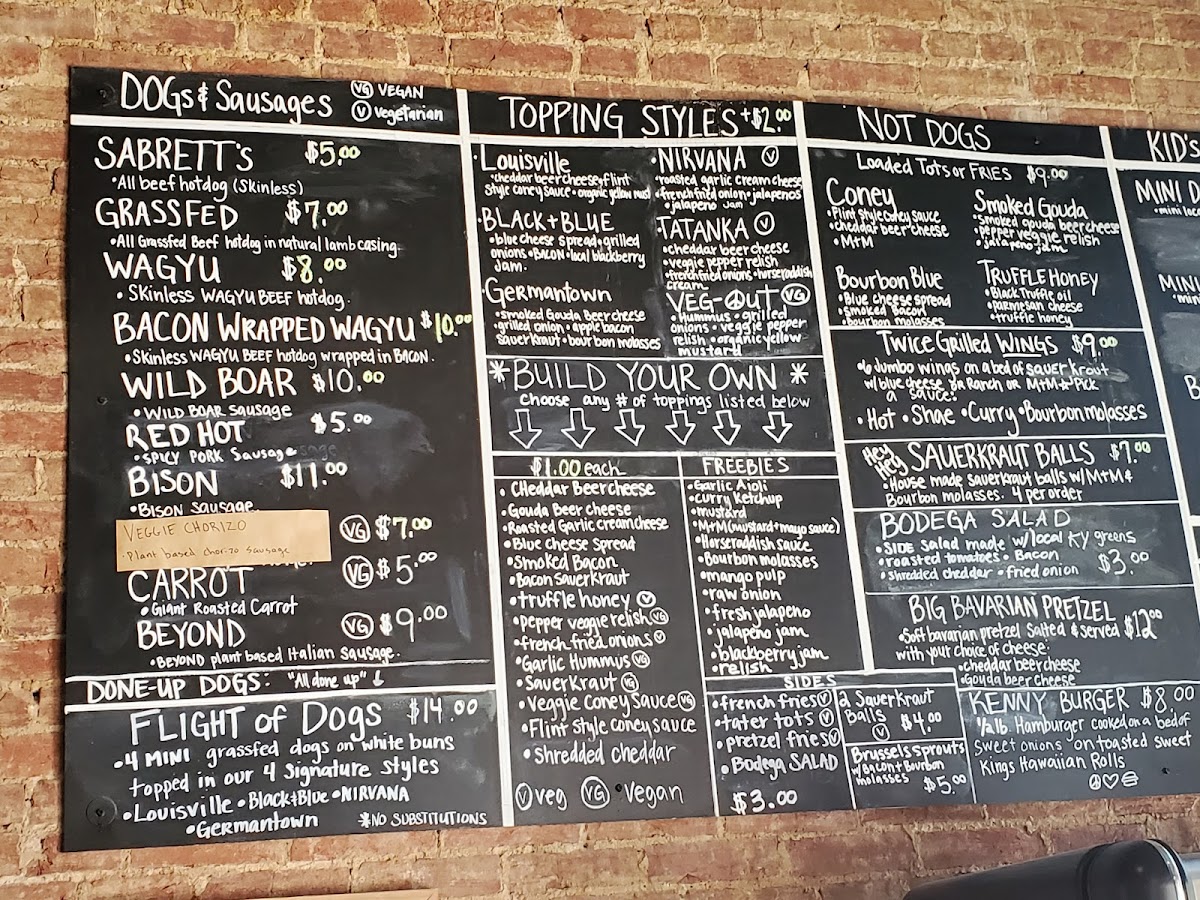 DOGs & Sausages
VG VEGAN
V Vegetarian
SABRETT's $5.00
• All beef hotdog (Skinless)
GRASSFED $7.00
• All Grassfed Beef hotdog in natural lamb casing.
WAGYU $8.00
• Skinless WAGYU BEEF hotdog.
BACON WRAPPED WAGYU $10.00
• Skinless WAGYU BEEF hotdog wrapped in BACON.
WILD BOAR $10.00
• WILD BOAR Sausage
RED HOT $5.00
• SPICY PORK Sausage
BISON $11.00
• Bison Sausage.
VEGGIE CHORIZO VG $7.00
• Plant based chorizo sausage
CARROT VG $5.00
• Giant Roasted Carrot
BEYOND VG $9.00
• BEYOND plant based Italian Sausage.
DONE-UP DOGS: "All done up" ↓
FLIGHT of DOGS $14.00
• 4 MINI grassfed dogs on white buns
topped in our 4 Signature styles
• Louisville • Black+Blue • NIRVANA
• Germantown
* NO SUBSTITUTIONS
TOPPING STYLES +$2.00
Louisville
• cheddar beer cheese, flint
style coney sauce • organic yellow must
BLACK+BLUE
• blue cheese spread • grilled
onions • BACON • local blackberry
Jam.
Germantown
• smoked Gouda Beer cheese
• grilled onion • apple bacon
sauerkraut • bourbon molasses
• NIRVANA V
• roasted garlic cream cheese
• french fried onion • jalapenos
• jalapeno Jam
TATANKA V
• cheddar beer cheese
• veggie pepper relish
• french fried onions • horseraddish
cream
VEG-OUT VG
• Hummus • grilled
onions • veggie pepper
relish • organic yellow
mustard
* BUILD YOUR OWN *
choose any # of toppings listed below
$1.00 each
• CHeddar Beer cheese
• Gouda Beer cheese
• Roasted Garlic cream cheese
• Blue cheese Spread
• Smoked Bacon
• Bacon Sauerkraut
• truffle honey V
• pepper veggie relish VG
• french fried onions V
• Garlic Hummus VG
• Sauerkraut VG
• Veggie Coney Sauce VG
• Flint Style coney sauce
• Shredded cheddar
V veg VG Vegan
FREEBIES
• Garlic Aioli
• curry ketchup
• mustard
• M+M (mustard+mayo sauce)
• Horseraddish sauce
• Bourbon molasses
• mango pulp
• raw onion
• fresh jalapeno
• jalapeno jam
• blackberry jam
• relish
SIDES
• french fries V
• tater tots V
• pretzel fries V
• Bodega SALAD
$3.00
2 Sauerkraut
Balls
V $4.00
Brussels sprouts
w/ BACON + Bourbon
molasses $5.00
NOT DOGS
Loaded Tots or FRIES $9.00
Coney
• Flint Style Coney sauce
• cheddar beer cheese
• M+M
Smoked Gouda
• smoked gouda beer cheese
• pepper veggie relish
• jalapeno jam
Bourbon Blue
• Blue cheese spread
• smoked Bacon
• bourbon molasses
TRUFFLE HONEY
• Black Truffle oil
• parmesan cheese
• truffle honey
TWICE Grilled WINGS $9.00
• 6 Jumbo wings on a bed of sauer kraut
w/ blue cheese or Ranch or M+M * Pick
a sauce:
• Hot • Shae • Curry • Bourbon molasses
Hey Hey SAUERKRAUT BALLS $7.00
• House made sauerkraut balls w/ M+M &
Bourbon molasses. 4 per order
BODEGA SALAD
• SIDE Salad made w/ local KY greens
• roasted tomatoes • Bacon
• shredded cheddar • fried onion $3.00
BIG BAVARIAN PRETZEL
• Soft bavarian pretzel Salted & served $12.00
with your choice of cheese:
• cheddar beer cheese
• Gouda beer cheese
KENNY BURGER $8.00
1/2 lb. Hamburger cooked on a bed of
sweet onions on toasted sweet
Kings Hawaiian Rolls
KID's
MINI D
• mini
MINI